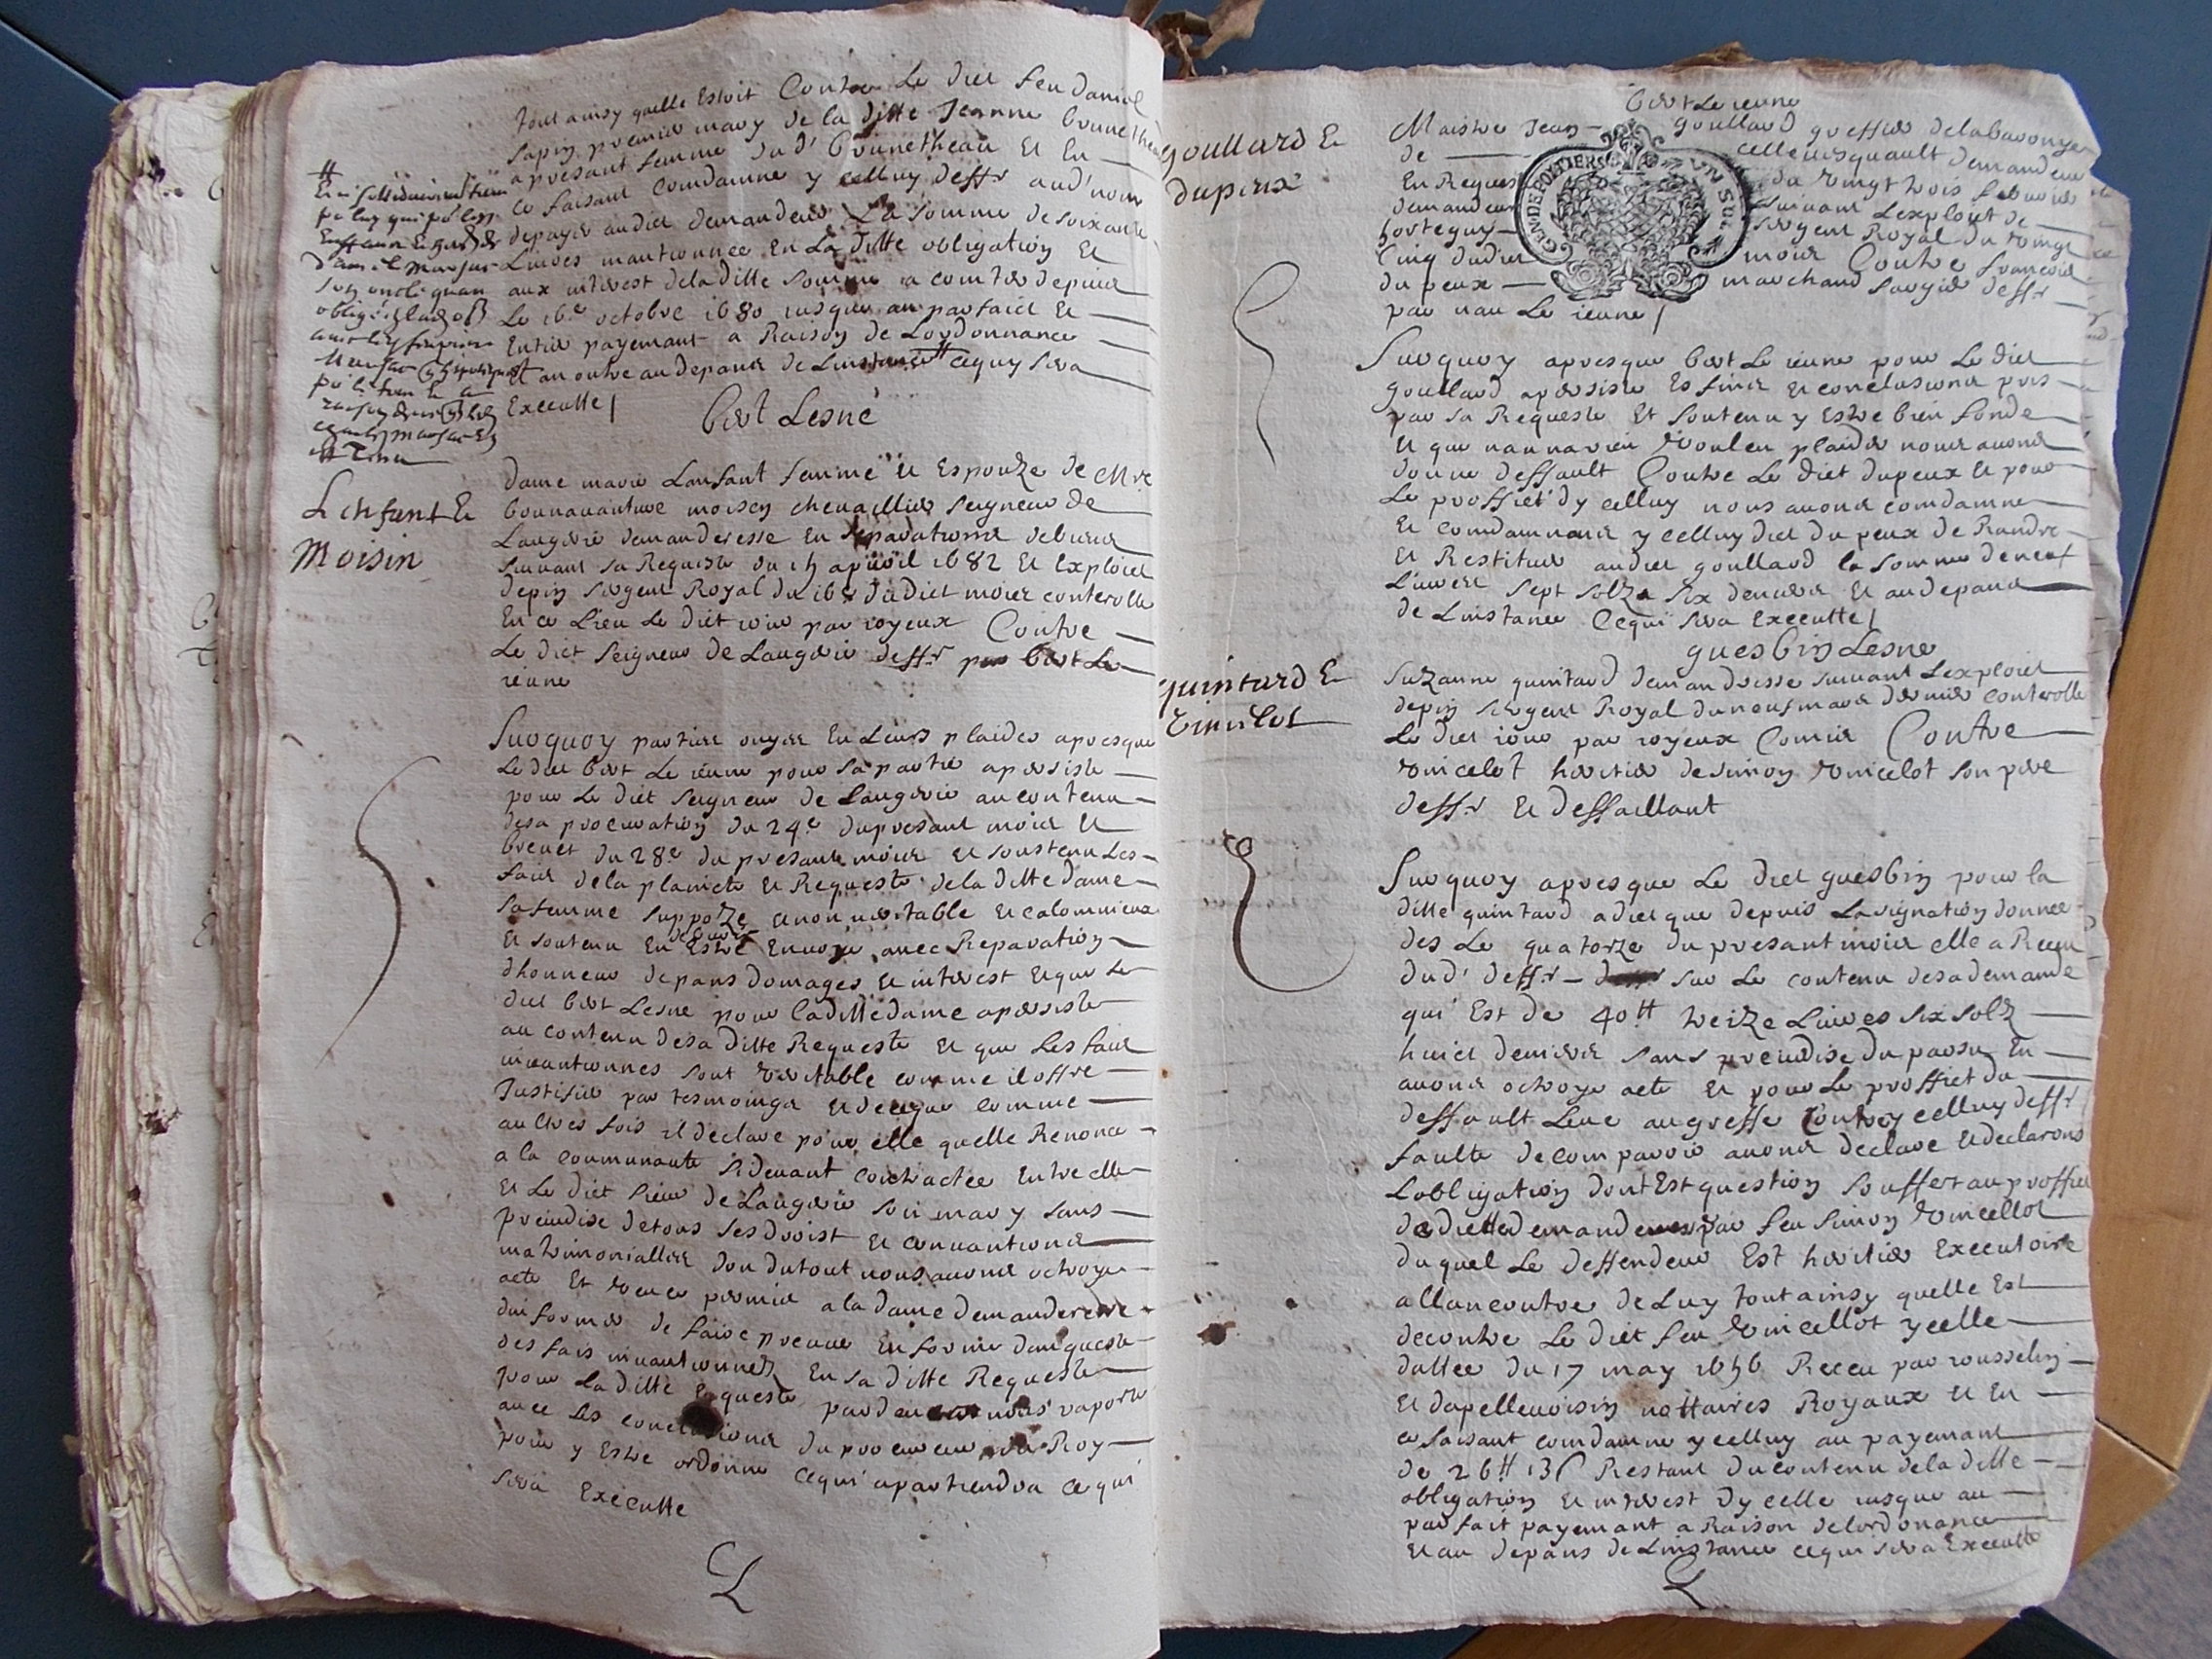 tout ainsy quelle Estoit Contre Le dict feu daniel
sapin premier mary de la ditte Jeanne brunethe
apresant femme dud' brunetheau Et En
ce faisant Comdamne y celluy deffr aud' nom
depayer audict demandeur La somme de soixante
Livres mantionnee En La ditte obligation Et
aux interest deladitte somme a comter depuis
Le 16e octobre 1680 jusques au parfaict Et
Entier payemant a Raison de Lordonnance
Et an outre au depans de Linstance # cequy sera
Executte /
bert Lesné
#
son oncle
Lenfant Et
Moisin
dame marie Lanfant femme Et Espouze de Mre
bonnavanture moisen chevaillier seigneur de
Laugerie demanderesse En separations de biens
suivant sa Requeste du 15 apvril 1682 Et Exploict
depin sergent Royal du 16e dudict mois conterolle
En ce Lieu Le diet jour par joyeux Contre
Le diet seigneur de Laugerie deffr par bert Le
jeune
Surquoy parties ouyes En Leurs plaides apresque
Le diet bert Le jeune pour sa partie apersiste
pour Le diet seigneur de Laugerie au contenu
desa procuration du 24e dupresant mois Et
brevet du 28e du presant mois Et soustenu Les
faits dela plaincte Et Requeste dela ditte dame
sa femme suppoze Et non veritable Et calomnieux
Et soutenu En Estre Envoye avec Reparation
dhonneur depans domages Et interest Et que Le
diet bert Lesne pour Laditte dame apersiste
au contenu desa ditte Requeste Et que Les faits
mantionnes sont veritable comme il offre
Justifier par tesmoings Et decequ comme
aultres fois il declare pour elle quelle Renonce
a la communaute sidevant contractee Entre elle
Et Le diet sieur de Laugerie son mary sans
prejudise detous ses droist Et convantions
matrimonialles don dutout nous avons octroye
acte Et permis a la dame demanderesse
dinformer de faire preuve En forme danqueste
des fais mantionnes En sa ditte Requeste
pour La ditte Enqueste pardevant nous raporte
avec Les conclusions du procureur du Roy
pour y Estre ordonne cequi apartiendra ce qui
sera Executte
goullard Et
dupeux
bert Le jeune
Maistre Jean goullard greffier delabaronye
de celleuesquault demandeur
En Reques du vingt trois febvrier
demandeur suivant Lexploict de
sergent Royal du vingt
Cinq dudict mois Contre francois
du peux marchand sargier deffr
par nau Le jeune /
GEN DE POITIERS UN SOL
Surquoy apresque bert Le jeune pour Le diet
goullard apersiste Es fins Et conclusions pris
par sa Requeste Et soutenu y Estre bien fonde
Et que nau na rien vouleu plaider nous avons
donne deffault Contre Le diet dupeux Et pour
Le proffict dy celluy nous avons comdamne
Et comdamnons y celluy diet du peux de Randre
Et Restituer audiet goullard la somme de neuf
Livres sept solz six deniers Et audepans
de Linstance Cequi sera Executte /
guesbin Lesne
quintard Et
vincelot
Suzanne quintard demandresse suivant Lexploict
depin sergent Royal duneuf mars dernier conterolle
Le diet jour par joyeux Comis Contre
vincelot heritier desimon vincelot son pere
deffr Et deffaillant
Surquoy apresque Le diet guesbin pour la
ditte quintard adict que depuis Lasignation donnee
des Le quatorze du presant mois elle a Receu
dud' deffr sur Le contenu desademande
qui Est de 40tt treize Livres six solz
huict deniers sans prejudise du parsu En
avons octroye acte Et pour Le proffict du
deffault Leue augreffe Contre y celluy deffr
faulte decomparoir avons declare Et declarons
Lobligation dont Est question souffert au proffict
de diette demanderesse par feu simon vincellot
duquel Le deffendeur Est heritier Executoire
allancontre de Luy tout ainsy quelle Est
decontre Le diet feu vincellot ycelle
dattee du 17 may 1656 Receu par rousselin
Et dapellevoisin nottaires Royaux Et En
ce faisant comdamne y celluy au payemant
de 26tt 13s Restant du contenu dela ditte
obligation Et interest dy celle jusque au
parfait payemant a Raison delordonance
Et au depans de Linstance cequi sera Executte